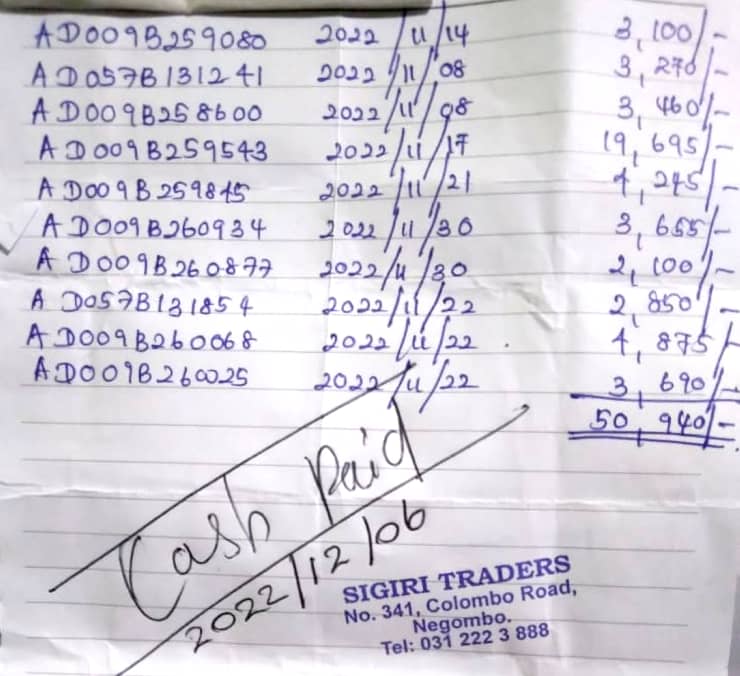 AD009B259080 2022/11/14 3,100/-
AD057B131241 2022/11/08 3,270/-
AD009B258600 2022/11/08 3,460/-
AD009B259543 2022/11/17 19,695/-
AD009B259845 2022/11/21 4,245/-
AD009B260934 2022/11/30 3,655/-
AD009B260877 2022/11/30 2,100/-
AD057B131854 2022/11/22 2,850/-
AD009B260068 2022/11/22 4,875/-
AD009B260025 2022/11/22 3,690/-
50,940/-
Cash Paid
2022/12/06
SIGIRI TRADERS
No. 341, Colombo Road,
Negombo.
Tel: 031 222 3 888